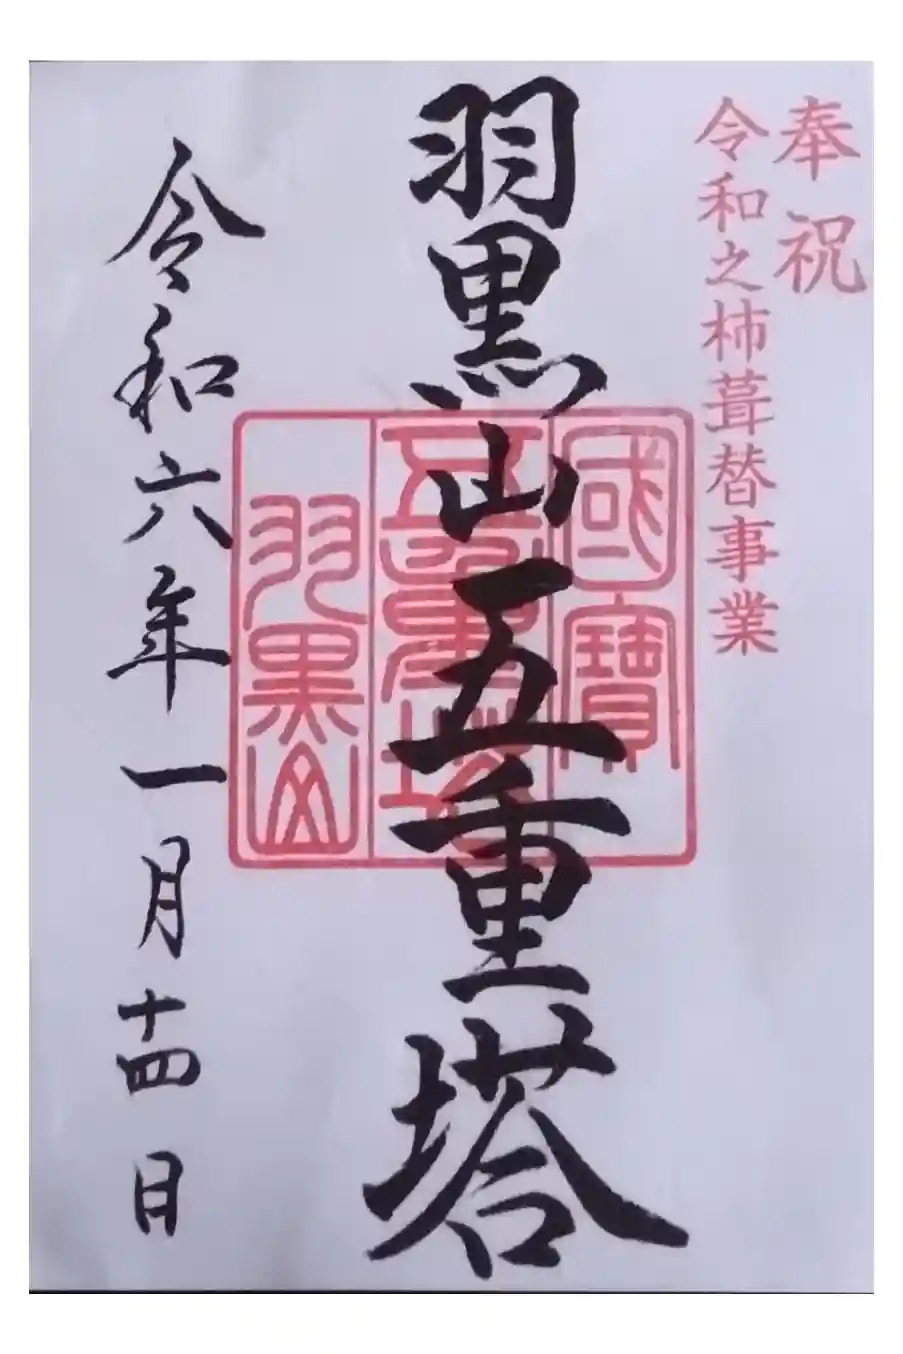 奉祝
令和之杮葺替事業
羽黒山五重塔
國寶
五重塔
羽黒山
令和六年一月十四日